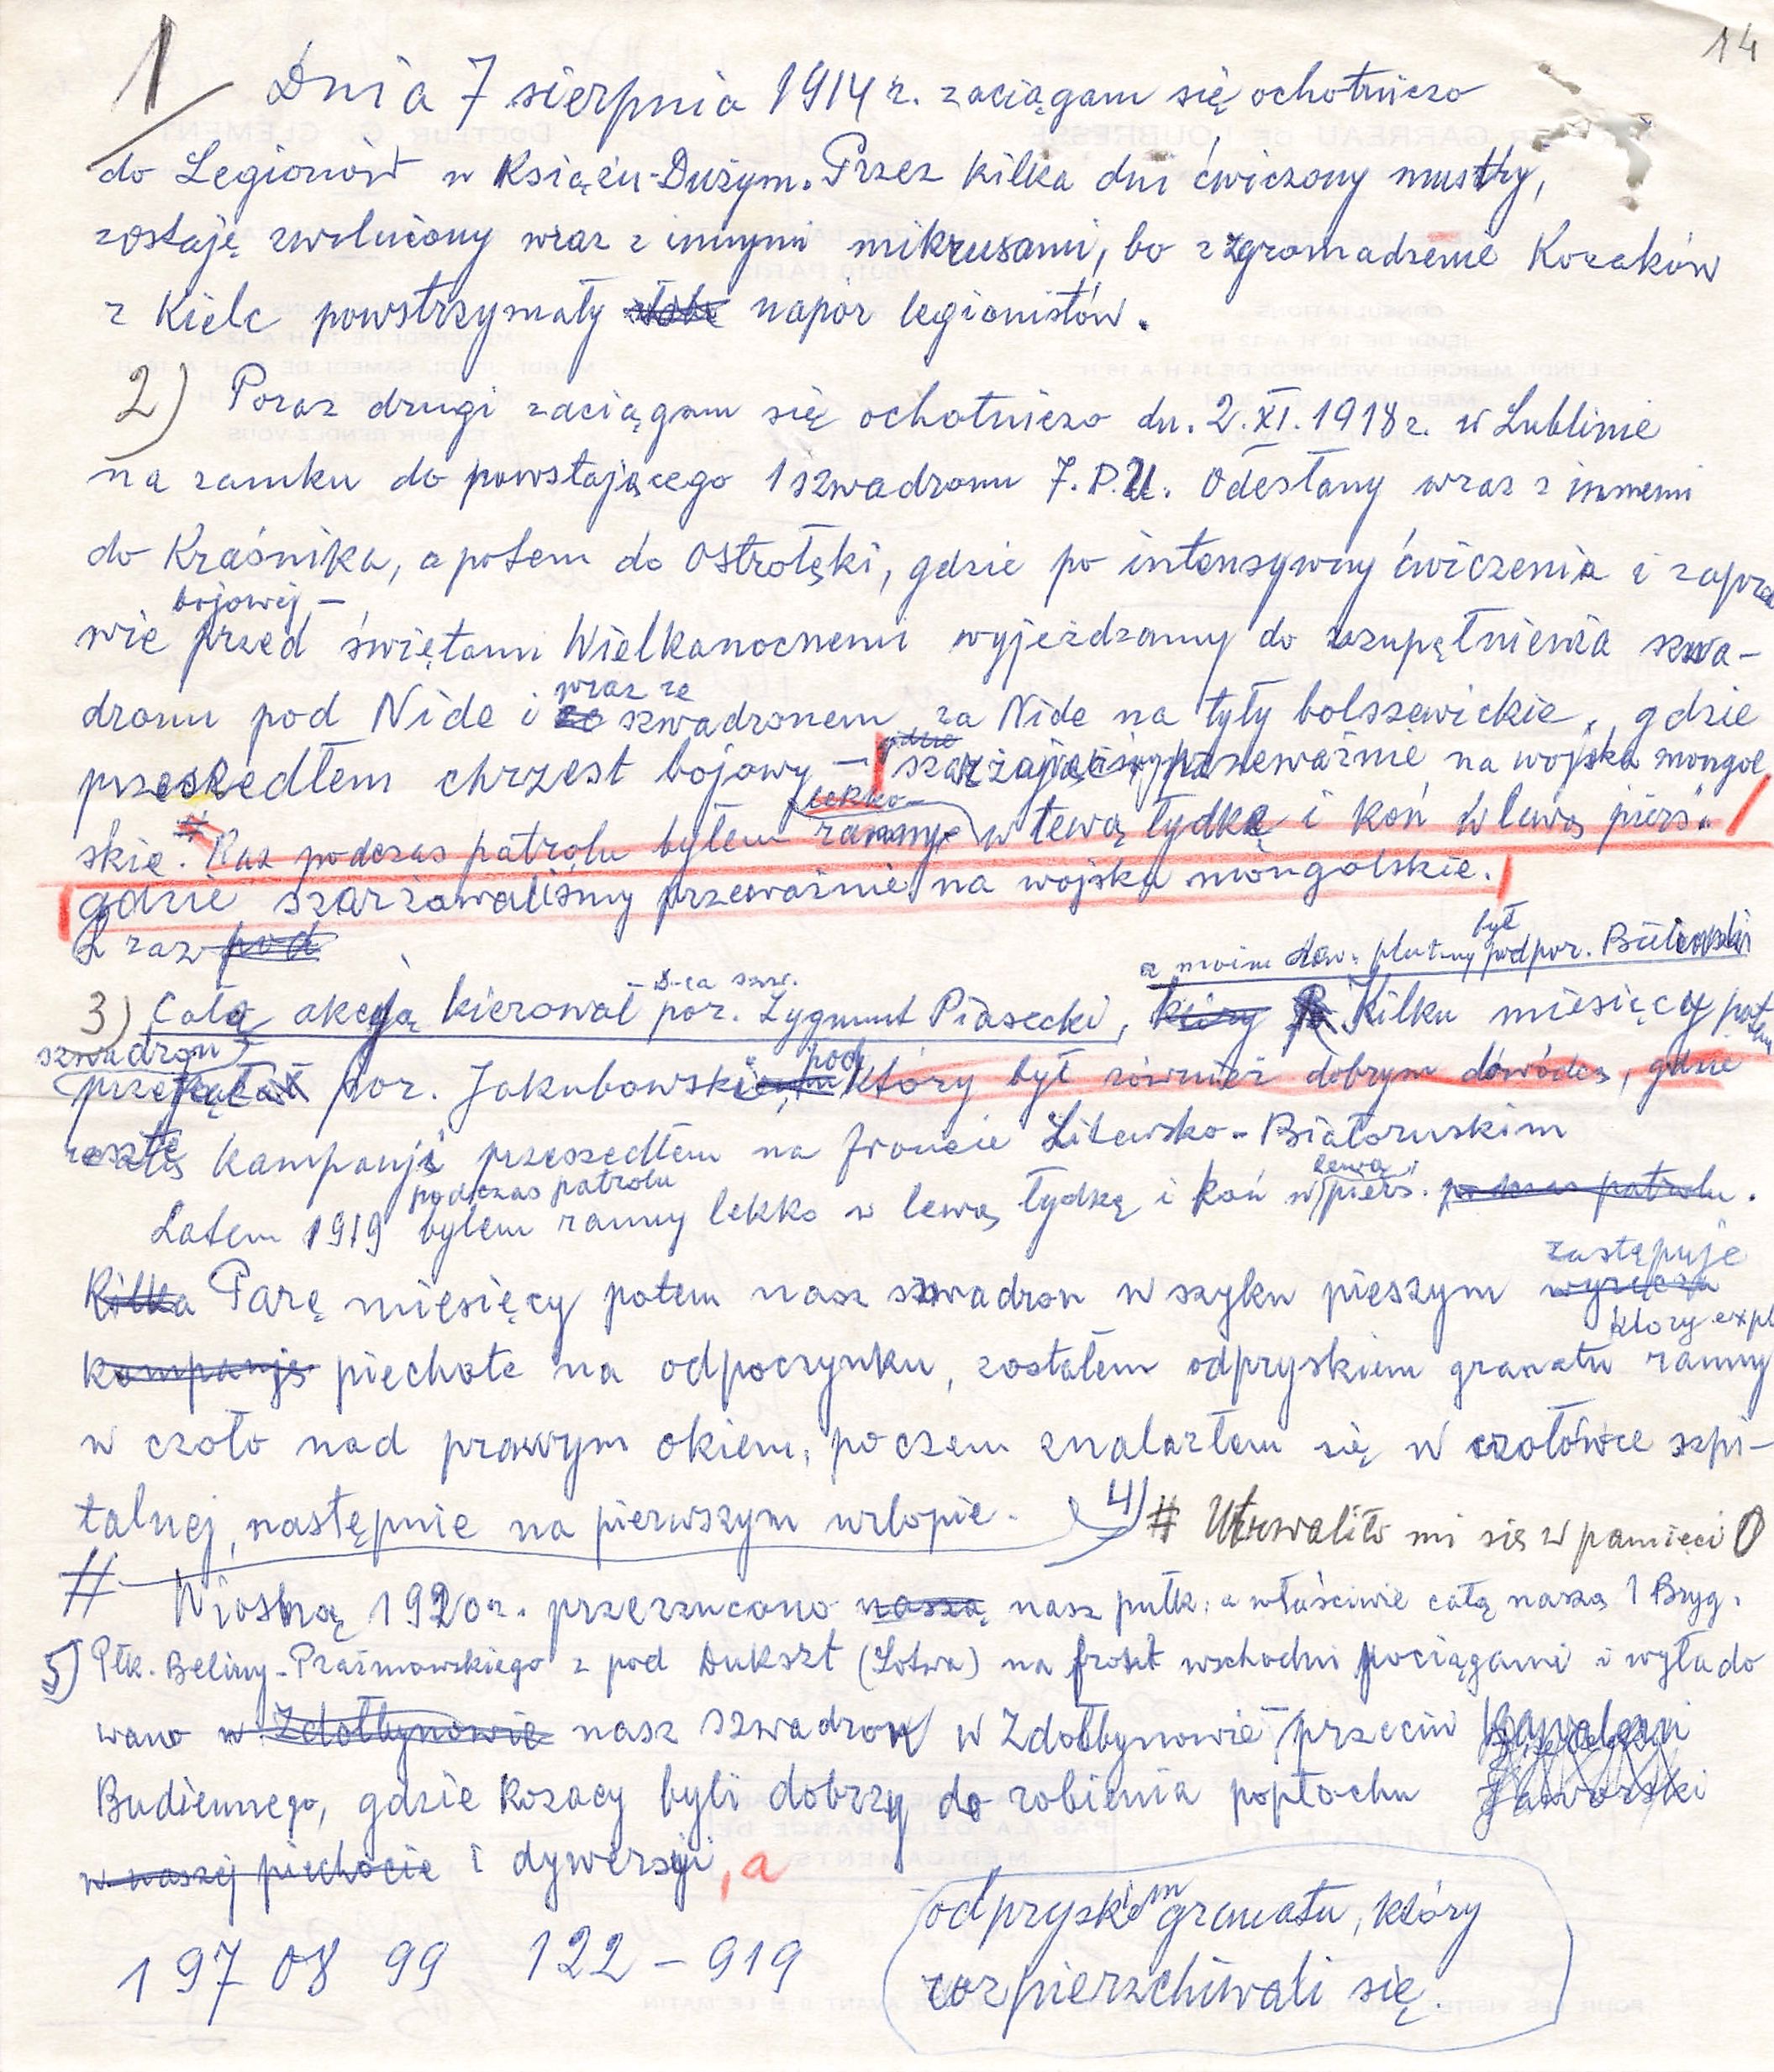 14
1/ Dnia 7 sierpnia 1914 r. zaciągam się ochotniczo
do Legionów w Książu-Dużym. Przez kilka dni ćwiczony mustry,
zostaję zwolniony wraz z innymi mikrusami, bo zgromadzenie Kozaków
z Kielc powstrzymały napór legionistów.
2) Poraz drugi zaciągam się ochotniczo dn. 2.XI.1918 r. w Lublinie
na zamku do powstającego 1 szwadronu 7.P.U. Odesłany wraz z innemi
do Kraśnika, a potem do Ostrołęki, gdzie po intensywny ćwiczenia i zapra
bojowej –
wie przed świętami Wielkanocnemi wyjeżdzamy do uzupełnienia szwa-
wraz ze
dronu pod Nide i szwadronem za Nide na tyły bolszewickie, gdzie
gdzie
przeszedłem chrzest bojowy – przeważnie na wojska mongol
lekko
skie. Raz podczas patrolu byłem ranny w lewą łydkę i koń w lewą pierś.
gdzie szarżowaliśmy przeważnie na wojska mongolskie.
I raz pod
a moim dow. plutonu był podpor. Butowski
– D-ca szw.
3) Całą akcją kierował por. Zygmunt Piasecki, który Kilku miesięcy potem
szwadron
przejął por. Jakubowski pod który był również dobrym dowódcą, gdzie
resztę kampanji przeszedłem na froncie Litewsko-Białoruskim
podczas patrolu lewą
Latem 1919 byłem ranny lekko w lewą łydkę i koń w pierś. podczas patrolu.
zastępuje
Kilka Parę miesięcy potem nasz szwadron w szyku pieszym wyręcza
który expl
kompanję piechote na odpoczynku, zostałem odpryskiem granatu ranny
w czoło nad prawym okiem, poczem znalazłem się w czołówce szpi-
talnej, następnie na pierwszym urlopie. 4) # Utrwaliło mi się w pamięci O
# Wiosną 1920 r. przerzucono naszą nasz pułk, a właściwie całą naszą 1 Bryg.
5) Płk. Beliny-Prażmowskiego z pod Dukszt (Łotwa) na front wschodni pociągami i wyłado
wano w Zdołbynowie nasz szwadron w Zdołbynowie przeciw
Budiennego, gdzie Kozacy byli dobrzy do robienia popłochu Jaworski
w naszej piechocie i dywersji, a
odpryskiem granatu, który
rozpierzchiwali się.
197 08 99 122 – 919